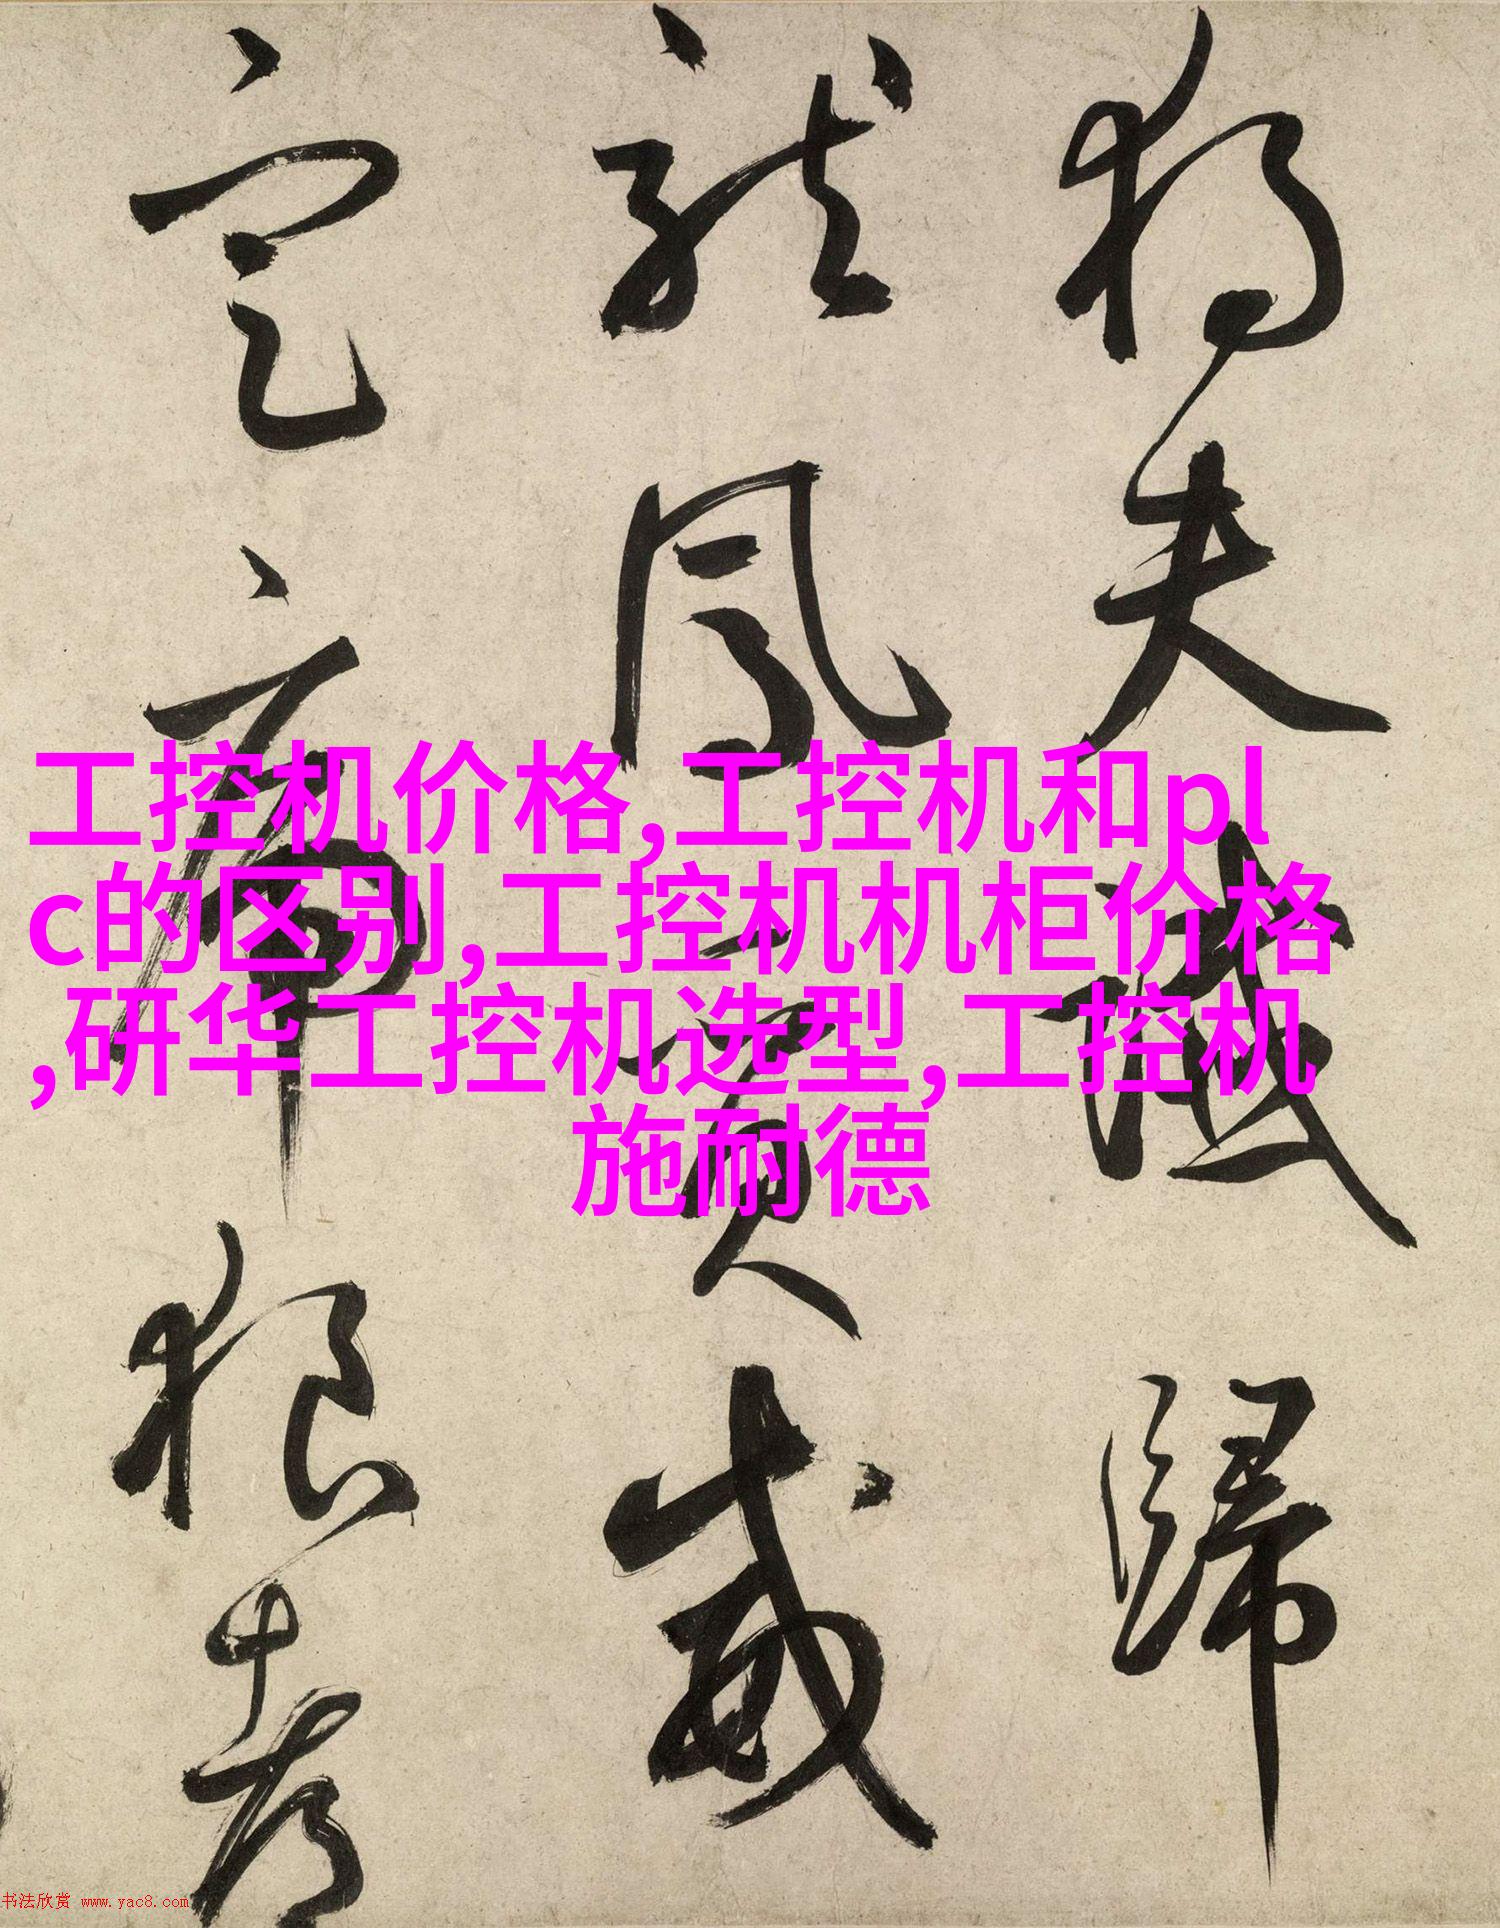 獨夫讖歸
龍鳳質威
定虎狼都
工控机价格,工控机和pl
c的区别,工控机机柜价格
,研华工控机选型,工控机
施耐德
书法欣赏 www.yac8.com